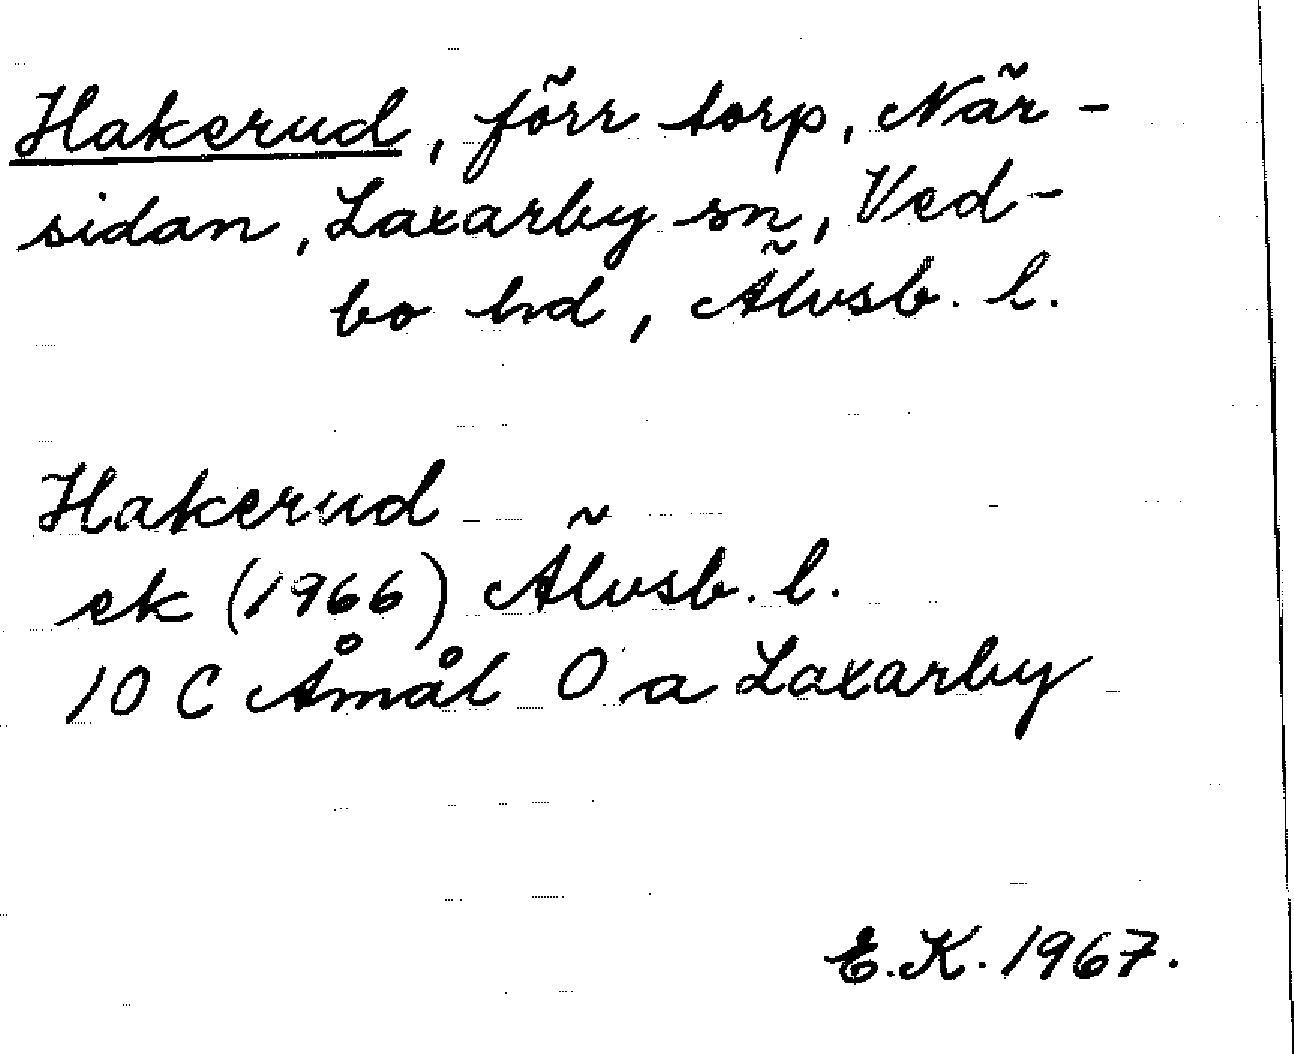 Hakerud, förr torp, När-
sidan, Laxarby sn, Ved-
bo hd, Älvsb. l.
Hakerud
ek (1966) Älvsb. l.
10 C Åmål O a Laxarby
E.K. 1967.